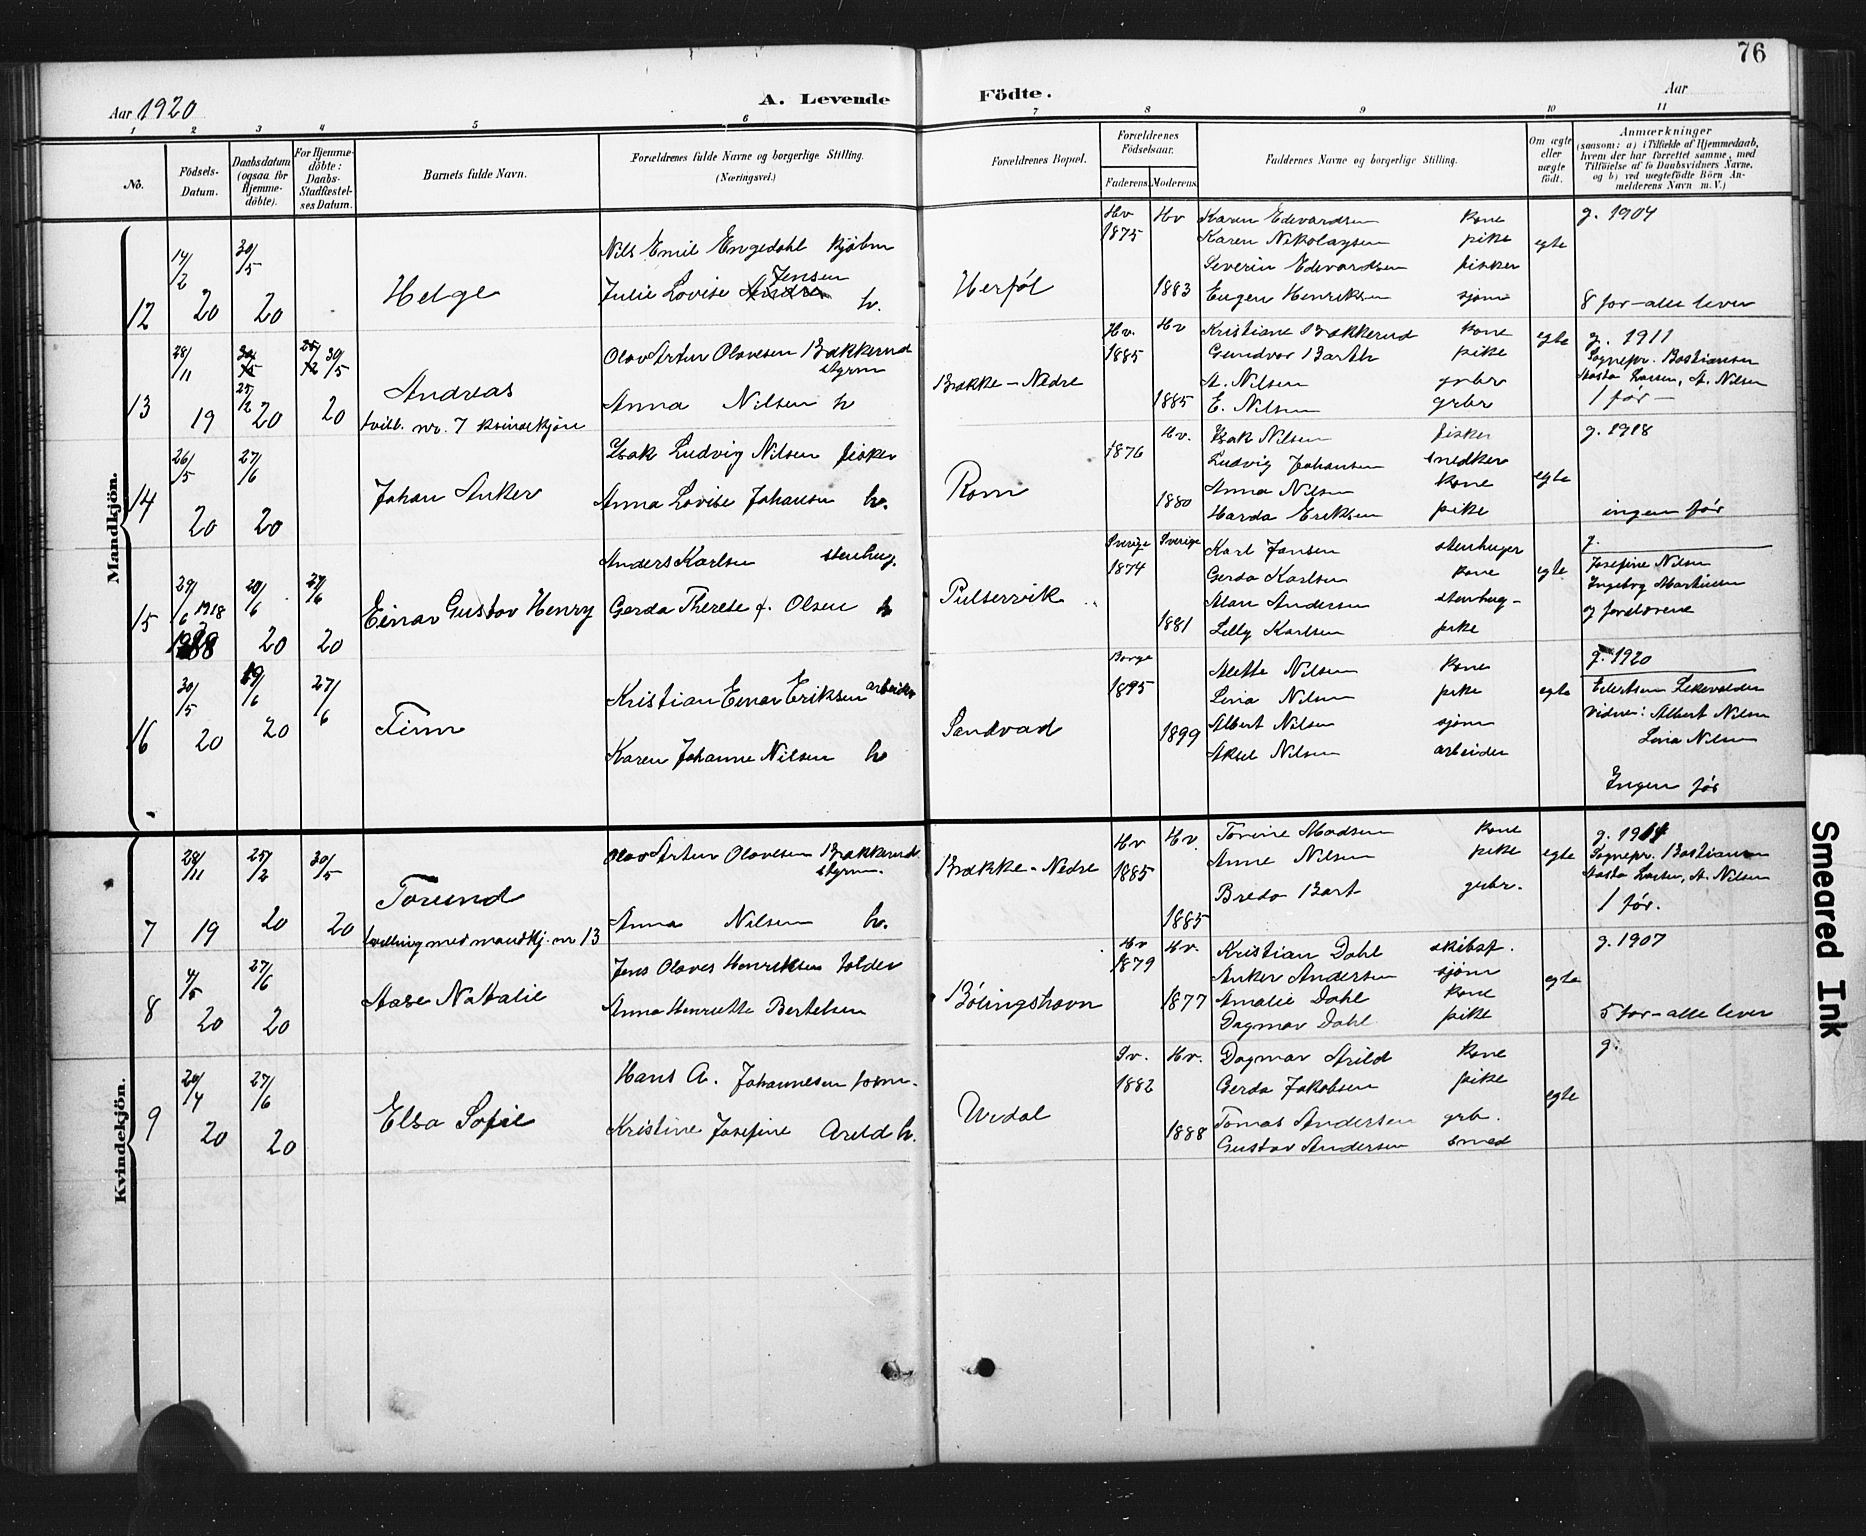 76
Aar 1920
A. Levende Födte.
Aar
1 2 3 4 5 6 7 8 9 10 11
No.
Födsels-Datum.
Daabsdatum (ogsaa for Hjemme-döbte).
For Hjemme-döbte: Daabs-Stadfæstel-ses Datum.
Barnets fulde Navn.
Forældrenes fulde Navne og borgerlige Stilling. (Næringsvei.)
Forældrenes Bopæl.
Forældrenes Födselsaar.
Faderens. Moderens.
Faddernes Navne og borgerlige Stilling.
Om ægte eller uægte födt.
Anmærkninger
(saasom: a) i Tilfælde af Hjemmedaab, hvem der har forrettet samme, med Tilföielse af to Daabsvidners Navne, og b) ved uægtefödte Börn An-melderens Navn m. V.)
Mandkjön.
12 14/2 20 30/5 20
Helge
Nils Emil Engedahl kjøbm
Julie Lovise Jensen h.
Herføl
Hv 1875 Hv 1883
Karen Edvardsen kone
Karen Nikolaysen pike
Severin Edvardsen fisker
Eugen Henriksen sjøm
egte
g. 1904
8 før - alle lever
13 28/11 19 25/12 20 30/5 20
Andreas
tvill. nr. 7 kvindekjøn
Olav Artur Olavesen Bækkerud styrm
Anna Nilsen h
Bække - Nedre
Hv. 1885 Hv 1885
Kristiane Bækkerud kone
Gundvor Barth pike
A. Nilsen grbr
E. Nilsen grbr
egte
g. 1911
Sognepr. Bastiansen
Aasta Larsen, A. Nilsen
1 før -
14 26/5 20 27/6 20
Johan Anker
Isak Ludvig Nilsen fisker
Anna Lovise Johansen h.
Rom
1876 Hv. 1880
Isak Nilsen fisker
Ludvig Johansen snedker
Anna Nilsen kone
Harda Eriksen pike
egte
g. 1918
ingen før
15 29/6 1918 20/6 20 27/6 20
Einar Gustav Henry
Anders Karlsen stenhug.
Gerda Therese f. Olsen h
Pulservik
Sverige 1874 Sverige 1881
Karl Jansen stenhuger
Gerda Karlsen kone
Alan Andersen stenhug-
Lelly Karlsen pike
egte
g.
Josefine Nilsen
Ingeborg Martinsen
og forældrene
16 30/5 20 19/6 20 27/6
Finn
Kristian Einar Eriksen arbeider
Karen Johanne Nilsen h
Sandvad
Borge 1895 1899
Alette Nilsen kone
Livia Nilsen pike
Albert Nilsen sjøm
Aksel Nilsen arbeider
egte
g. 1920
Vidner: Albert Nilsen
Livia Nilsen
Ingen før
Kvindekjön.
7 28/11 19 25/2 20 30/5 20
Torund
tvilling med mandkj. nr 13
Olav Artur Olavesen Bækkerud styrm.
Anna Nilsen h.
Bække - Nedre
Hv 1885 Hv. 1885
Torine Madsen kone
Anne Nilsen pike
Breda Bart grbr.
egte
g. 1911
Sognepr. Bastiansen
Aasta Larsen, A. Nilsen
1 før.
8 4/5 20 27/6 20
Aase Natalie
Jens Olaves Henriksen tolder
Anna Henriette Bertelsen
Bølingshavn
Hv 1879 Hv. 1877
Kristian Dahl skibsf.
Anker Andersen sjøm
Amalie Dahl kone
Dagmar Dahl pike
egte
g. 1907
5 før - alle lever
9 20/4 20 27/6 20
Elsa Sofie
Hans A. Johannesen form.
Kristine Josefine Arild h.
Urdal
Sv. 1882 Hv. 1888
Dagmar Arild kone
Gerda Jakobsen pike
Tomas Andersen grb.
Gustav Andersen smed
egte
g.
Smeared Ink